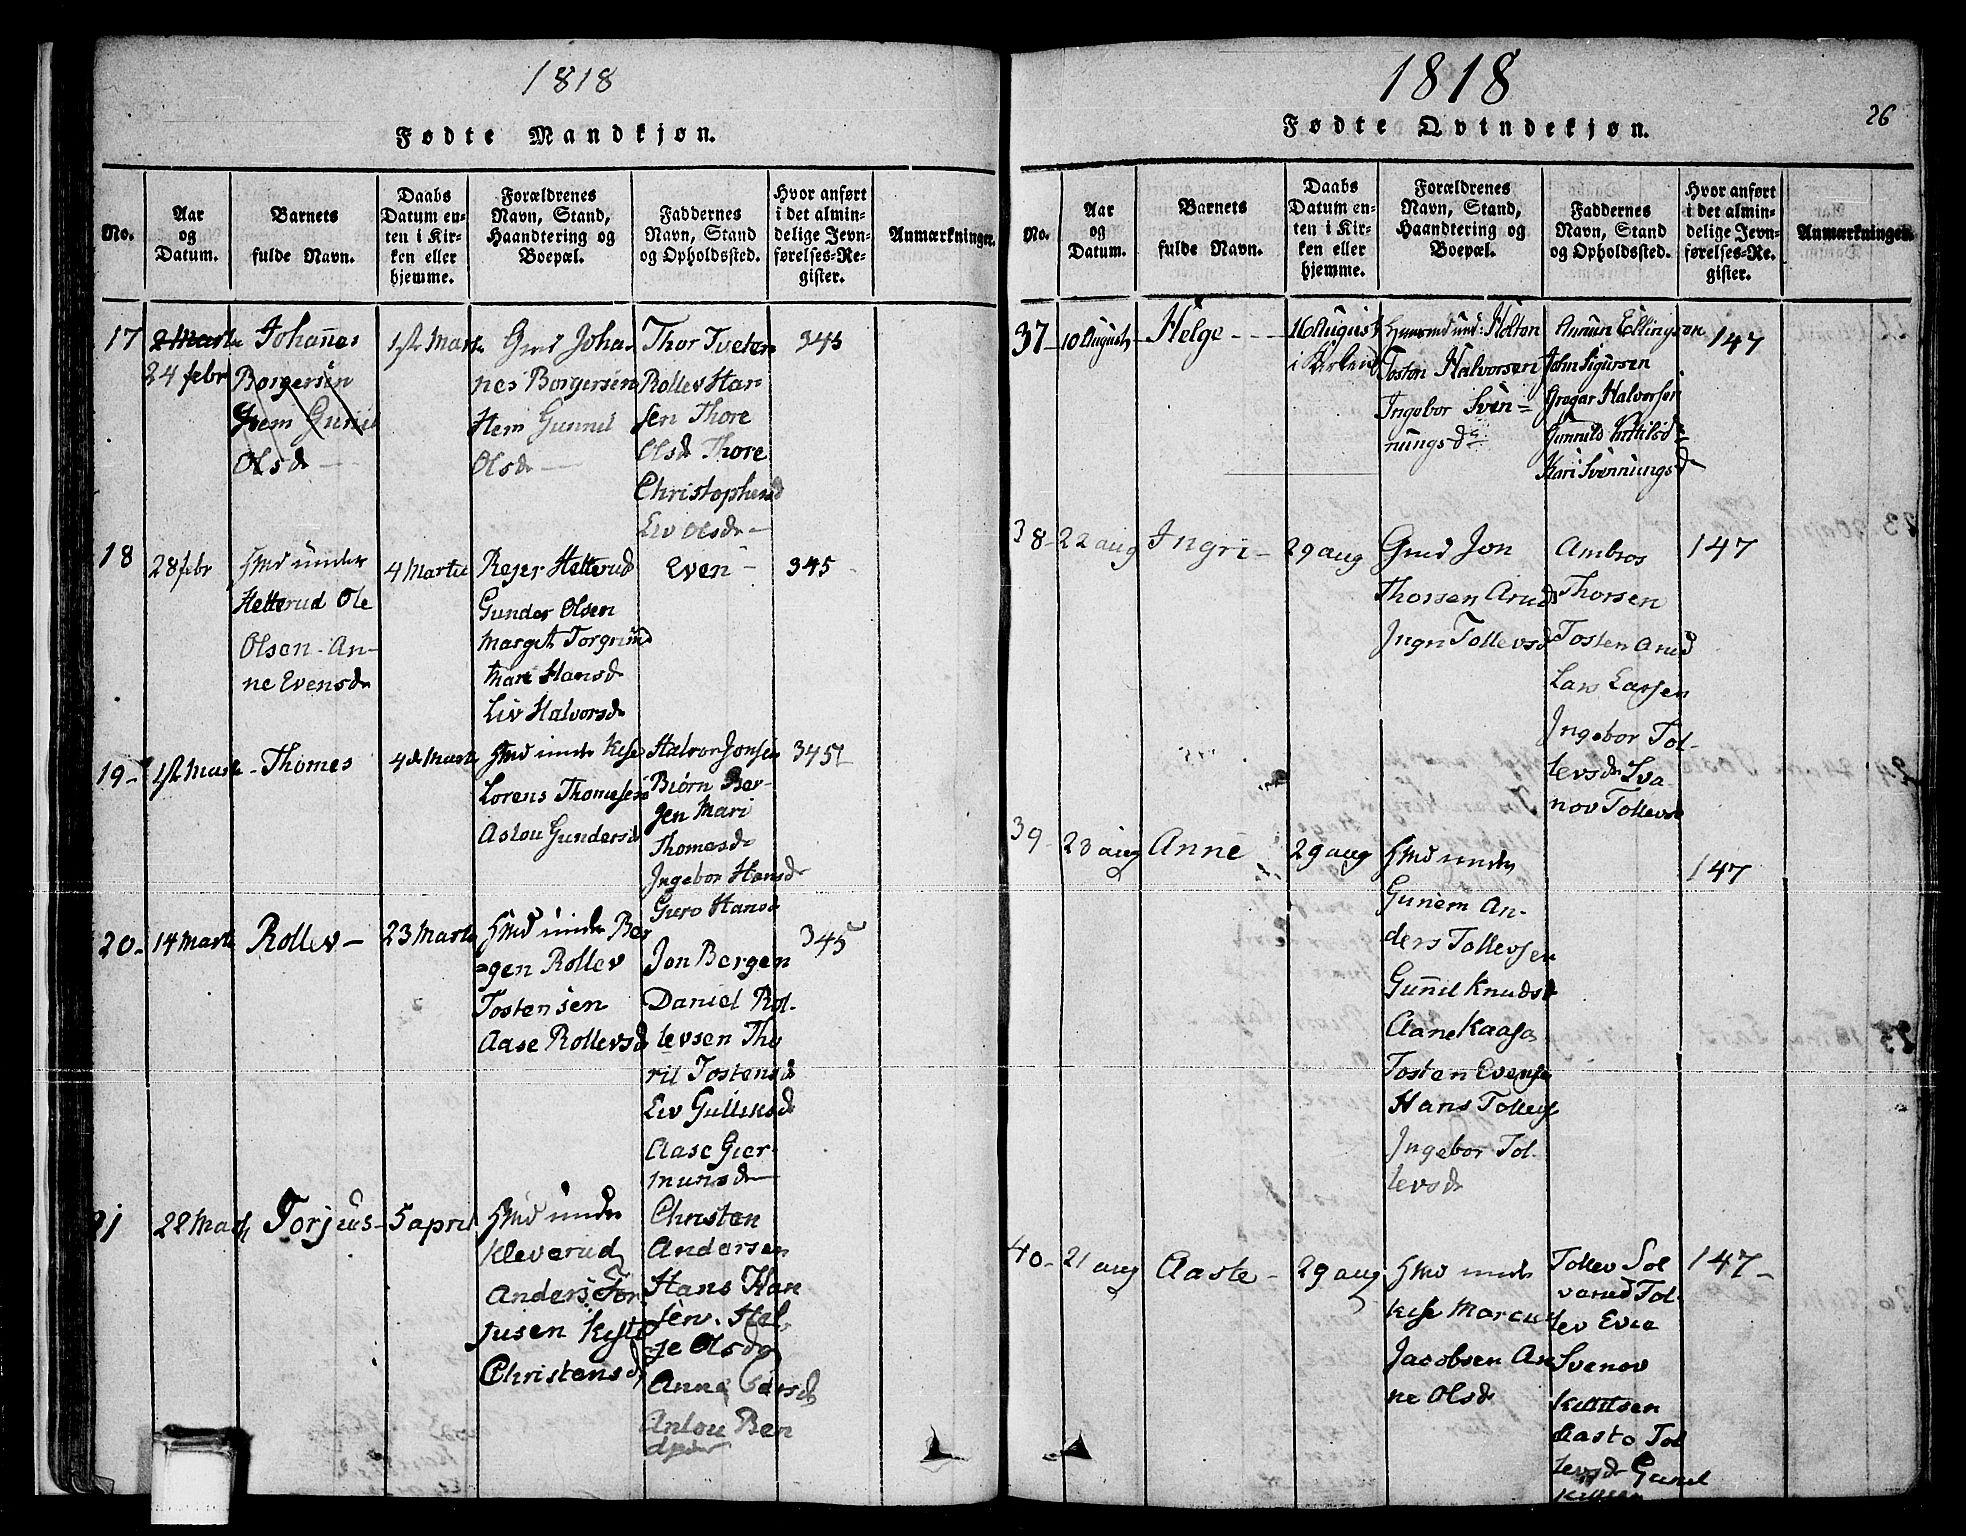 1818
Fødte Mandkjøn.
No.
Aar
og
Datum.
Barnets
fulde Navn.
Daabs
Datum en-
ten i Kir-
ken eller
hjemme.
Forældrenes
Navn, Stand,
Haandtering og
Boepæl.
Faddernes
Navn, Stand
og Opholdssted.
Hvor anført
i det almin-
delige Jevn-
førelses-Re-
gister.
Anmærkninger.
17
2 Marte
24 febr
Johanes
Borgersen
Hem Guniil
Olsd
1st Marte
Gmd Joha
nes Borgersen
Hem Gunnil
Olsd
Thor Tveten
Rollev Han
sen Thore
Olsd Thore
Christophersd
Liv Olsd
345
18
28 febr
Hmd under
Hetterud Ole
Olsen An-
ne Evensd
4 Marte
Rejer Hetterud
Gunder Olsen
Margit Torgrimd
Mari Hansd
Liv Halvorsd
Even
345
19
1st Marte
Thomes
4d Marte
Hmd under Kise
Lorens Thomesen
Aslou Gundersd
Halvor Jonsen
Biørn Ber-
gen Mari
Thomesd
Ingebor Hansd
Guro Hansd
345
20
14 Marte
Rollev
23 Marte
Hmd under Ber
gen Rollev
Tostensen
Aase Rollevsd
Jon Bergen
Daniel Rol-
levsen Tho
ril Tostensd
Liv Gulliksd
Aase Gier-
munsd
345
21
28 March
Torjeus
5 april
Hmd under
Kleverud
Anders Tor
jusen Kisti
Christensd
Christen
Andersen
Hans Han
sen Hel-
je Olsd
Anne Larsd
Anlou Ben
1818
26
Fødte Qvindekjøn.
No.
Aar
og
Datum.
Barnets
fulde Navn.
Daabs
Datum en-
ten i Kir-
ken eller
hjemme.
Forældrenes
Navn, Stand,
Haandtering og
Boepæl.
Faddernes
Navn, Stand
og Opholdssted.
Hvor anført
i det almin-
delige Jevn-
førelses-Re-
gister.
Anmærkninger.
37
10 August
Helge
16 August
i Kirken
Hmd und: Holton
Toston Halvorsen
Ingebor Sven=
nungsd
Annun Ellingsen
John Sigursen
Gregar Halvorsen
Gunnild Kittilsd
Kari Svennungsd
147
38
22 aug
Ingri
29 aug
Gmd Jon
Thorsen Arud
Ingri Tollevsd
Ambros
Thorsen
Tosten Arud
Lars Larsen
Ingebor Tol-
levsd Sva
nov Tollevsd
147
39
23 aug
Anne
29 aug
Hmd under
Gunem An-
ders Tollevsen
Gunnil Knudsd
Aane Kaasa
Tosten Evensen
Hans Tollevs
Ingebor Tol-
levsd
147
40
21 aug
Aaste
29 aug
Hmd under
Kise Marcus
Jacobsen An
ne Olsd
Tollev Sol
varud Tol-
lev Evie
Svenov
Knutsen
Aasto Tol
levsd Gunil
147